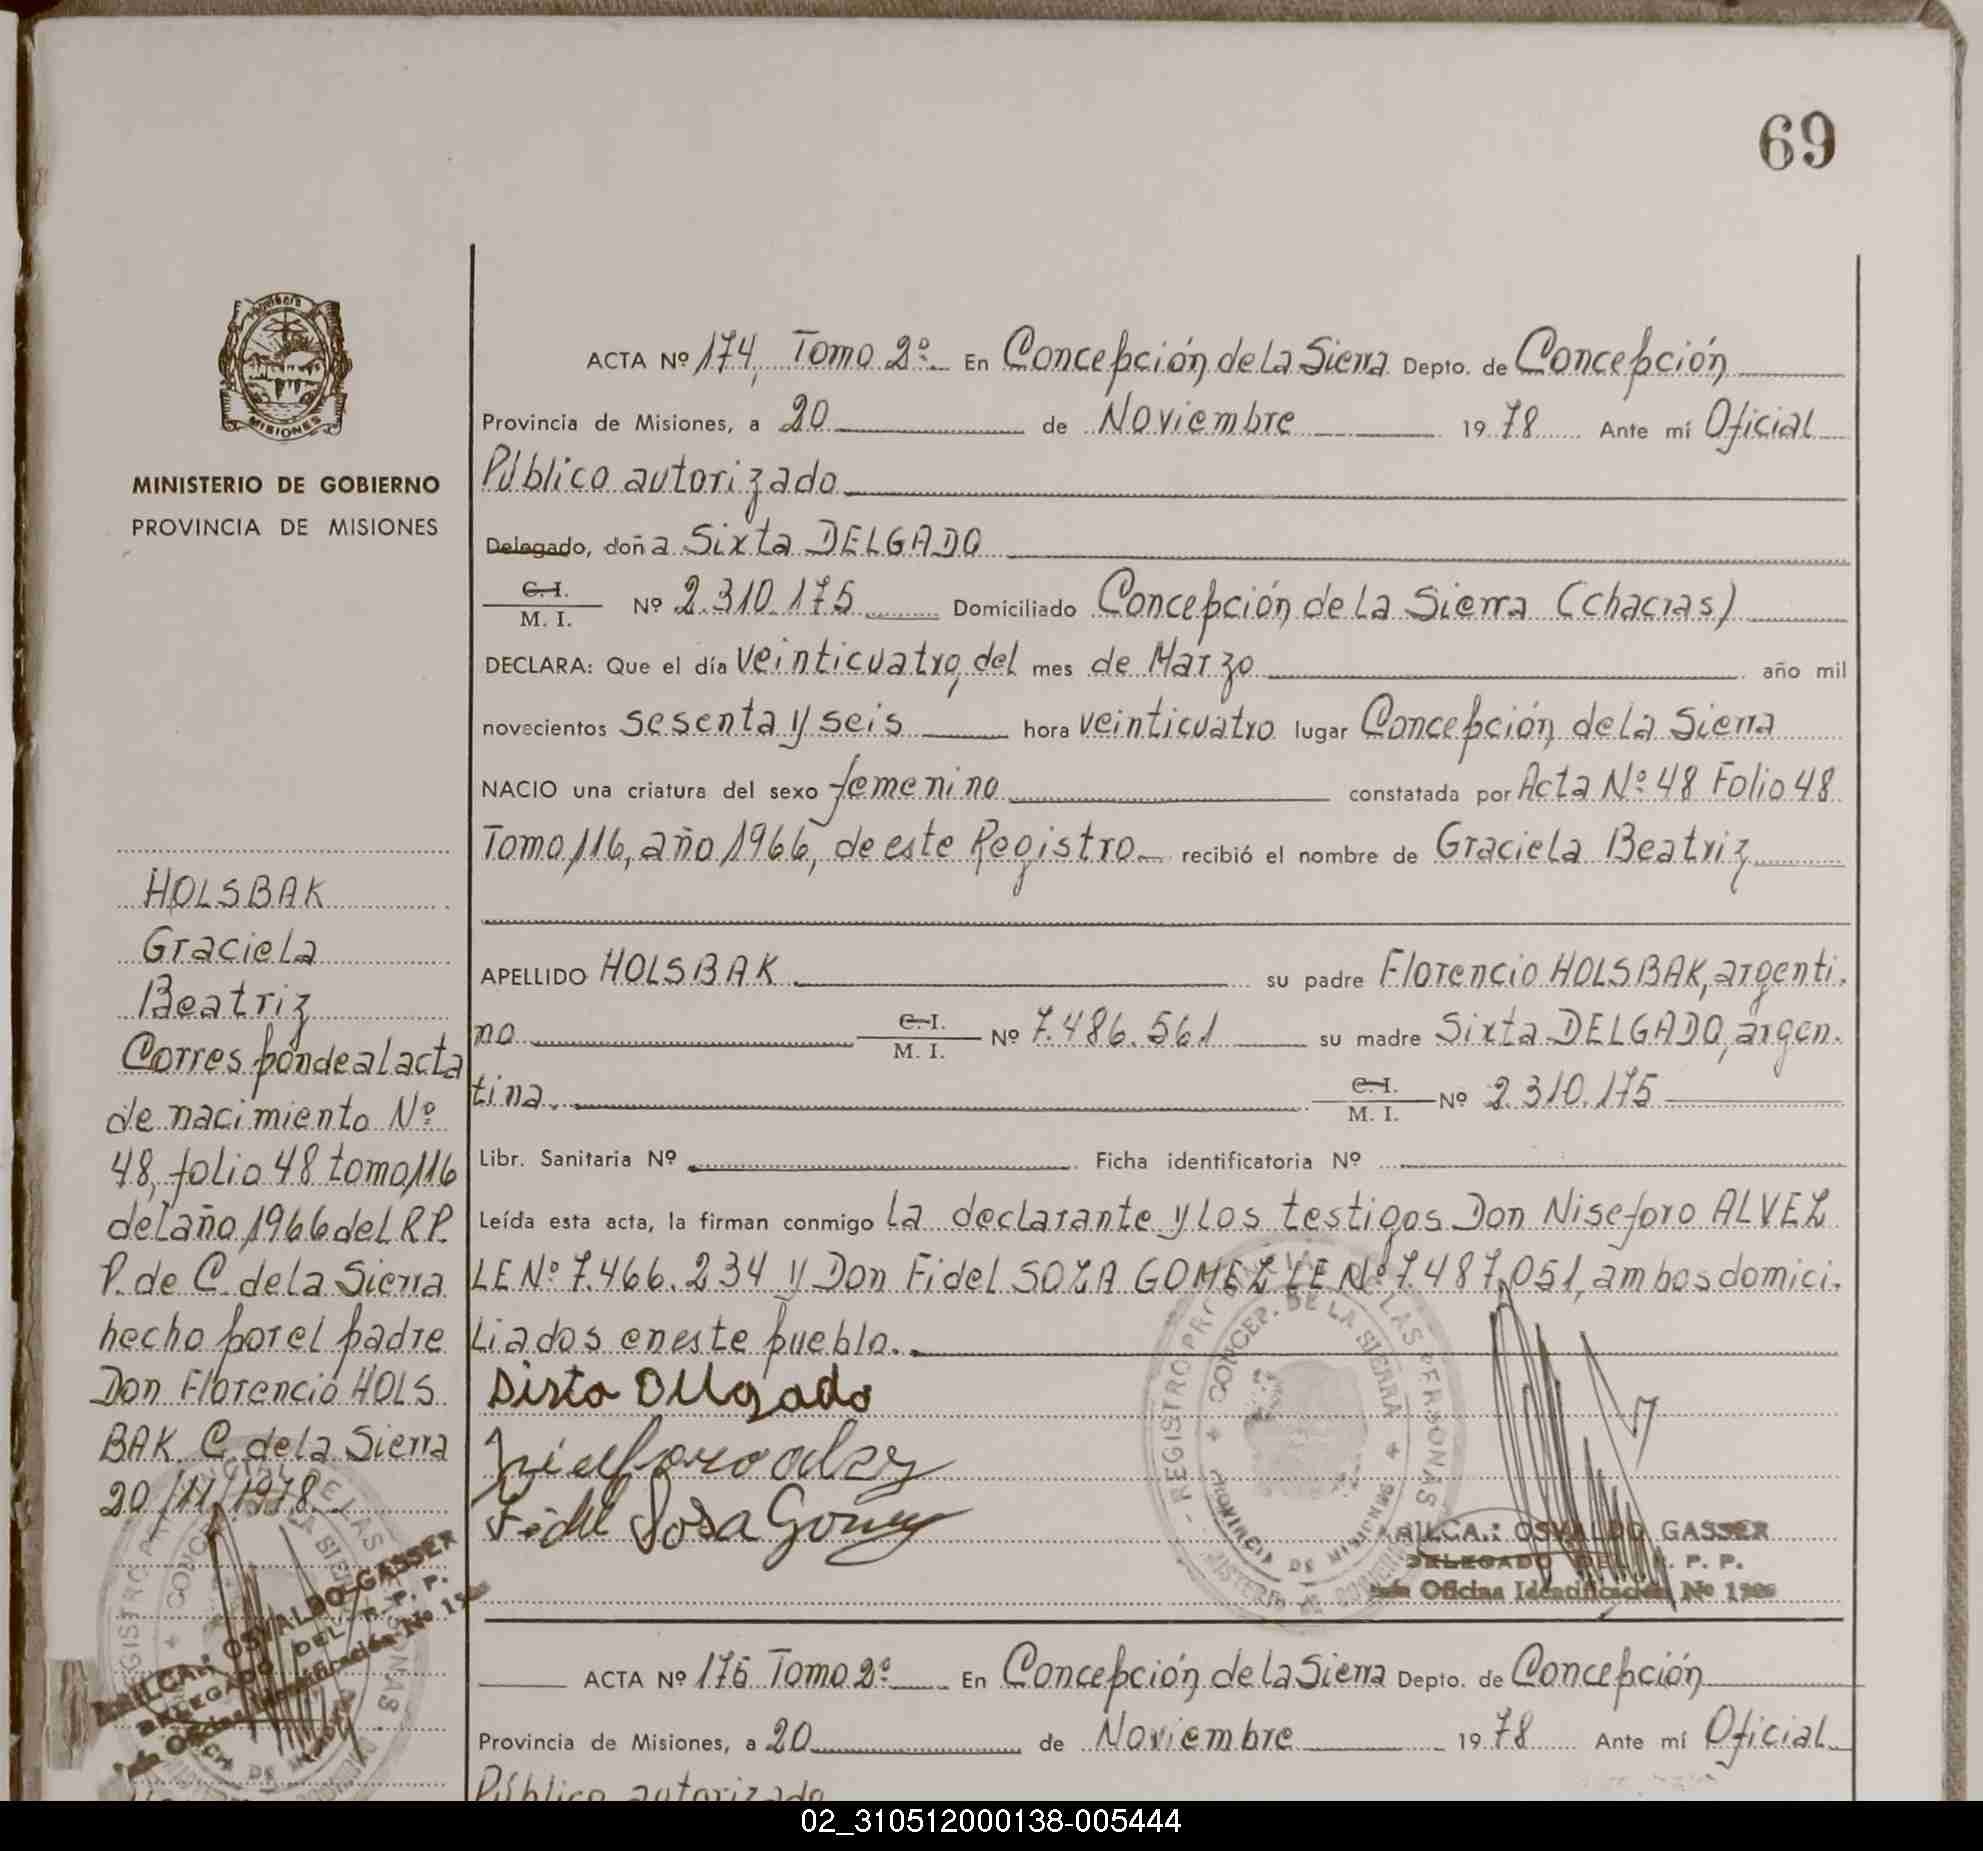 69
MISIONES
MINISTERIO DE GOBIERNO
PROVINCIA DE MISIONES
ACTA Nº 174, Tomo 2º En Concepción de La Sierra Depto. de Concepción
Provincia de Misiones, a 20 de Noviembre 1978 Ante mí Oficial
Público autorizado
Delegado, doña Sixta DELGADO
C. I.
M. I. Nº 2.310.175 Domiciliado Concepción de La Sierra (chacras)
DECLARA: Que el día veinticuatro, del mes de Marzo año mil
novecientos sesenta y seis hora veinticuatro lugar Concepción de La Sierra
NACIO una criatura del sexo femenino constatada por Acta Nº 48 Folio 48
Tomo 116, año 1966, de este Registro recibió el nombre de Graciela Beatriz
APELLIDO HOLSBAK su padre Florencio HOLSBAK, argenti.
no C. I. M. I. Nº 7.486.561 su madre Sixta DELGADO, argen.
tina. C. I. M. I. Nº 2.310.175
Libr. Sanitaria Nº Ficha identificatoria Nº
Leída esta acta, la firman conmigo la declarante y Los testigos Don Niseforo ALVEZ
LE Nº 7.466.234 y Don Fidel SOZA GOMEZ LE Nº 7.487.051, ambos domici.
Liados en este pueblo.
Sixta Delgado
Fidel Sosa Gomez
REGISTRO PROVINCIAL DE LAS PERSONAS
CONCEP. DE LA SIERRA
PROVINCIA DE MISIONES
OSVALDO GASSER
DELEGADO DEL R. P. P.
Oficina Identificación No
HOLSBAK
Graciela
Beatriz
Corresponde al acta
de nacimiento Nº
48, folio 48 tomo 116
del año 1966 del R.P.
P. de C. de la Sierra
hecho por el padre
Don Florencio HOLS
BAK. C. de la Sierra
20/11/1978
OSVALDO GASSER
DELEGADO DEL R. P. P.
Oficina Identificación No
ACTA Nº 175 Tomo 2º En Concepción de la Sierra Depto. de Concepción
Provincia de Misiones, a 20 de Noviembre 1978 Ante mí Oficial
Público autorizado
02_310512000138-005444